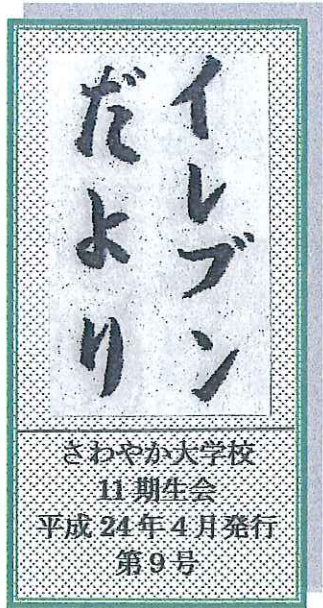 イレブン
だより
さわやか大学校
11期生会
平成24年4月発行
第9号